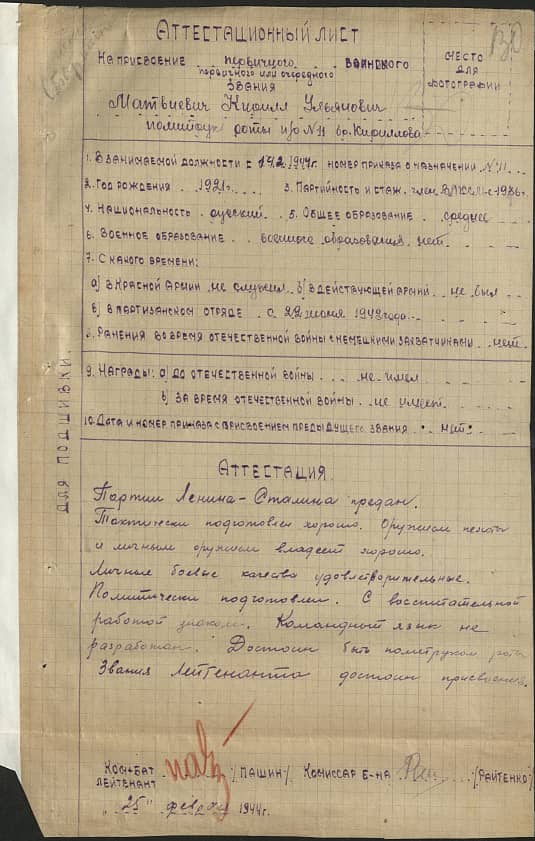 Аттестационный лист
На присвоение первичного воинского
первичного или очередного
звания
место
для
фотографии
Матвиевич Кирилл Ульянович
политрук роты п/о N11 бр. Кириллова
1. В занимаемой должности с 14.2.1944г. номер приказа о назначении N 11
2. Год рождения . 1921г. 3. Партийность и стаж. член ВЛКСМ с 1936г.
4. Национальность . русский . 5. Общее образование . среднее
6. Военное образование . . военного образования нет.
7. С какого времени:
а) В Красной Армии не служил б) в действующей армии . не был
в) В партизанском отряде . с 22 июня 1943 года
8. Ранения во время отечественной войны с немецкими захватчиками . нет.
9. Награды: а) до отечественной войны . . . не имел
б) за время отечественной войны . не имеет.
10. Дата и номер приказа с присвоением предыдущего звания . нет.
Для подшивки
Аттестация
Партии Ленина-Сталина предан.
Тактически подготовлен хорошо. Оружием пехоты
и личным оружием владеет хорошо.
Личные боевые качества удовлетворительные.
Политически подготовлен. С воспитательной
работой знаком. Командный язык не
разработан. Достоин быть политруком роты
Звания Лейтенанта достоин присвоения.
Комбат
лейтенант /Пашин/ Комиссар б-на (Райтенко)
"25" февраля 1944г.